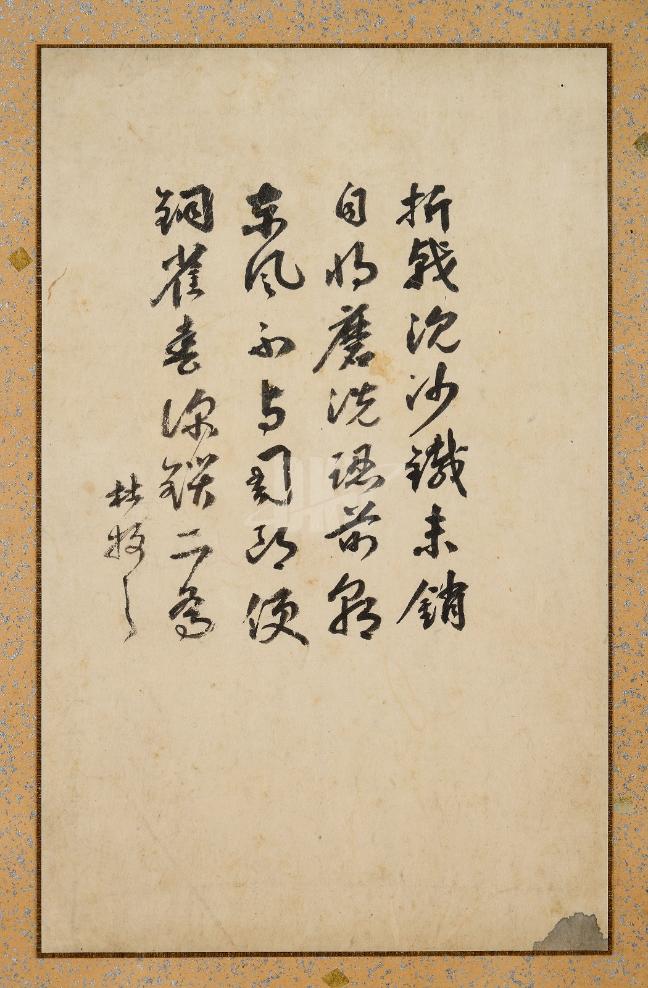 折戟沈沙鐵未銷
自將磨洗認前朝
東風不与周郎便
銅雀春深鎖二喬
杜牧之